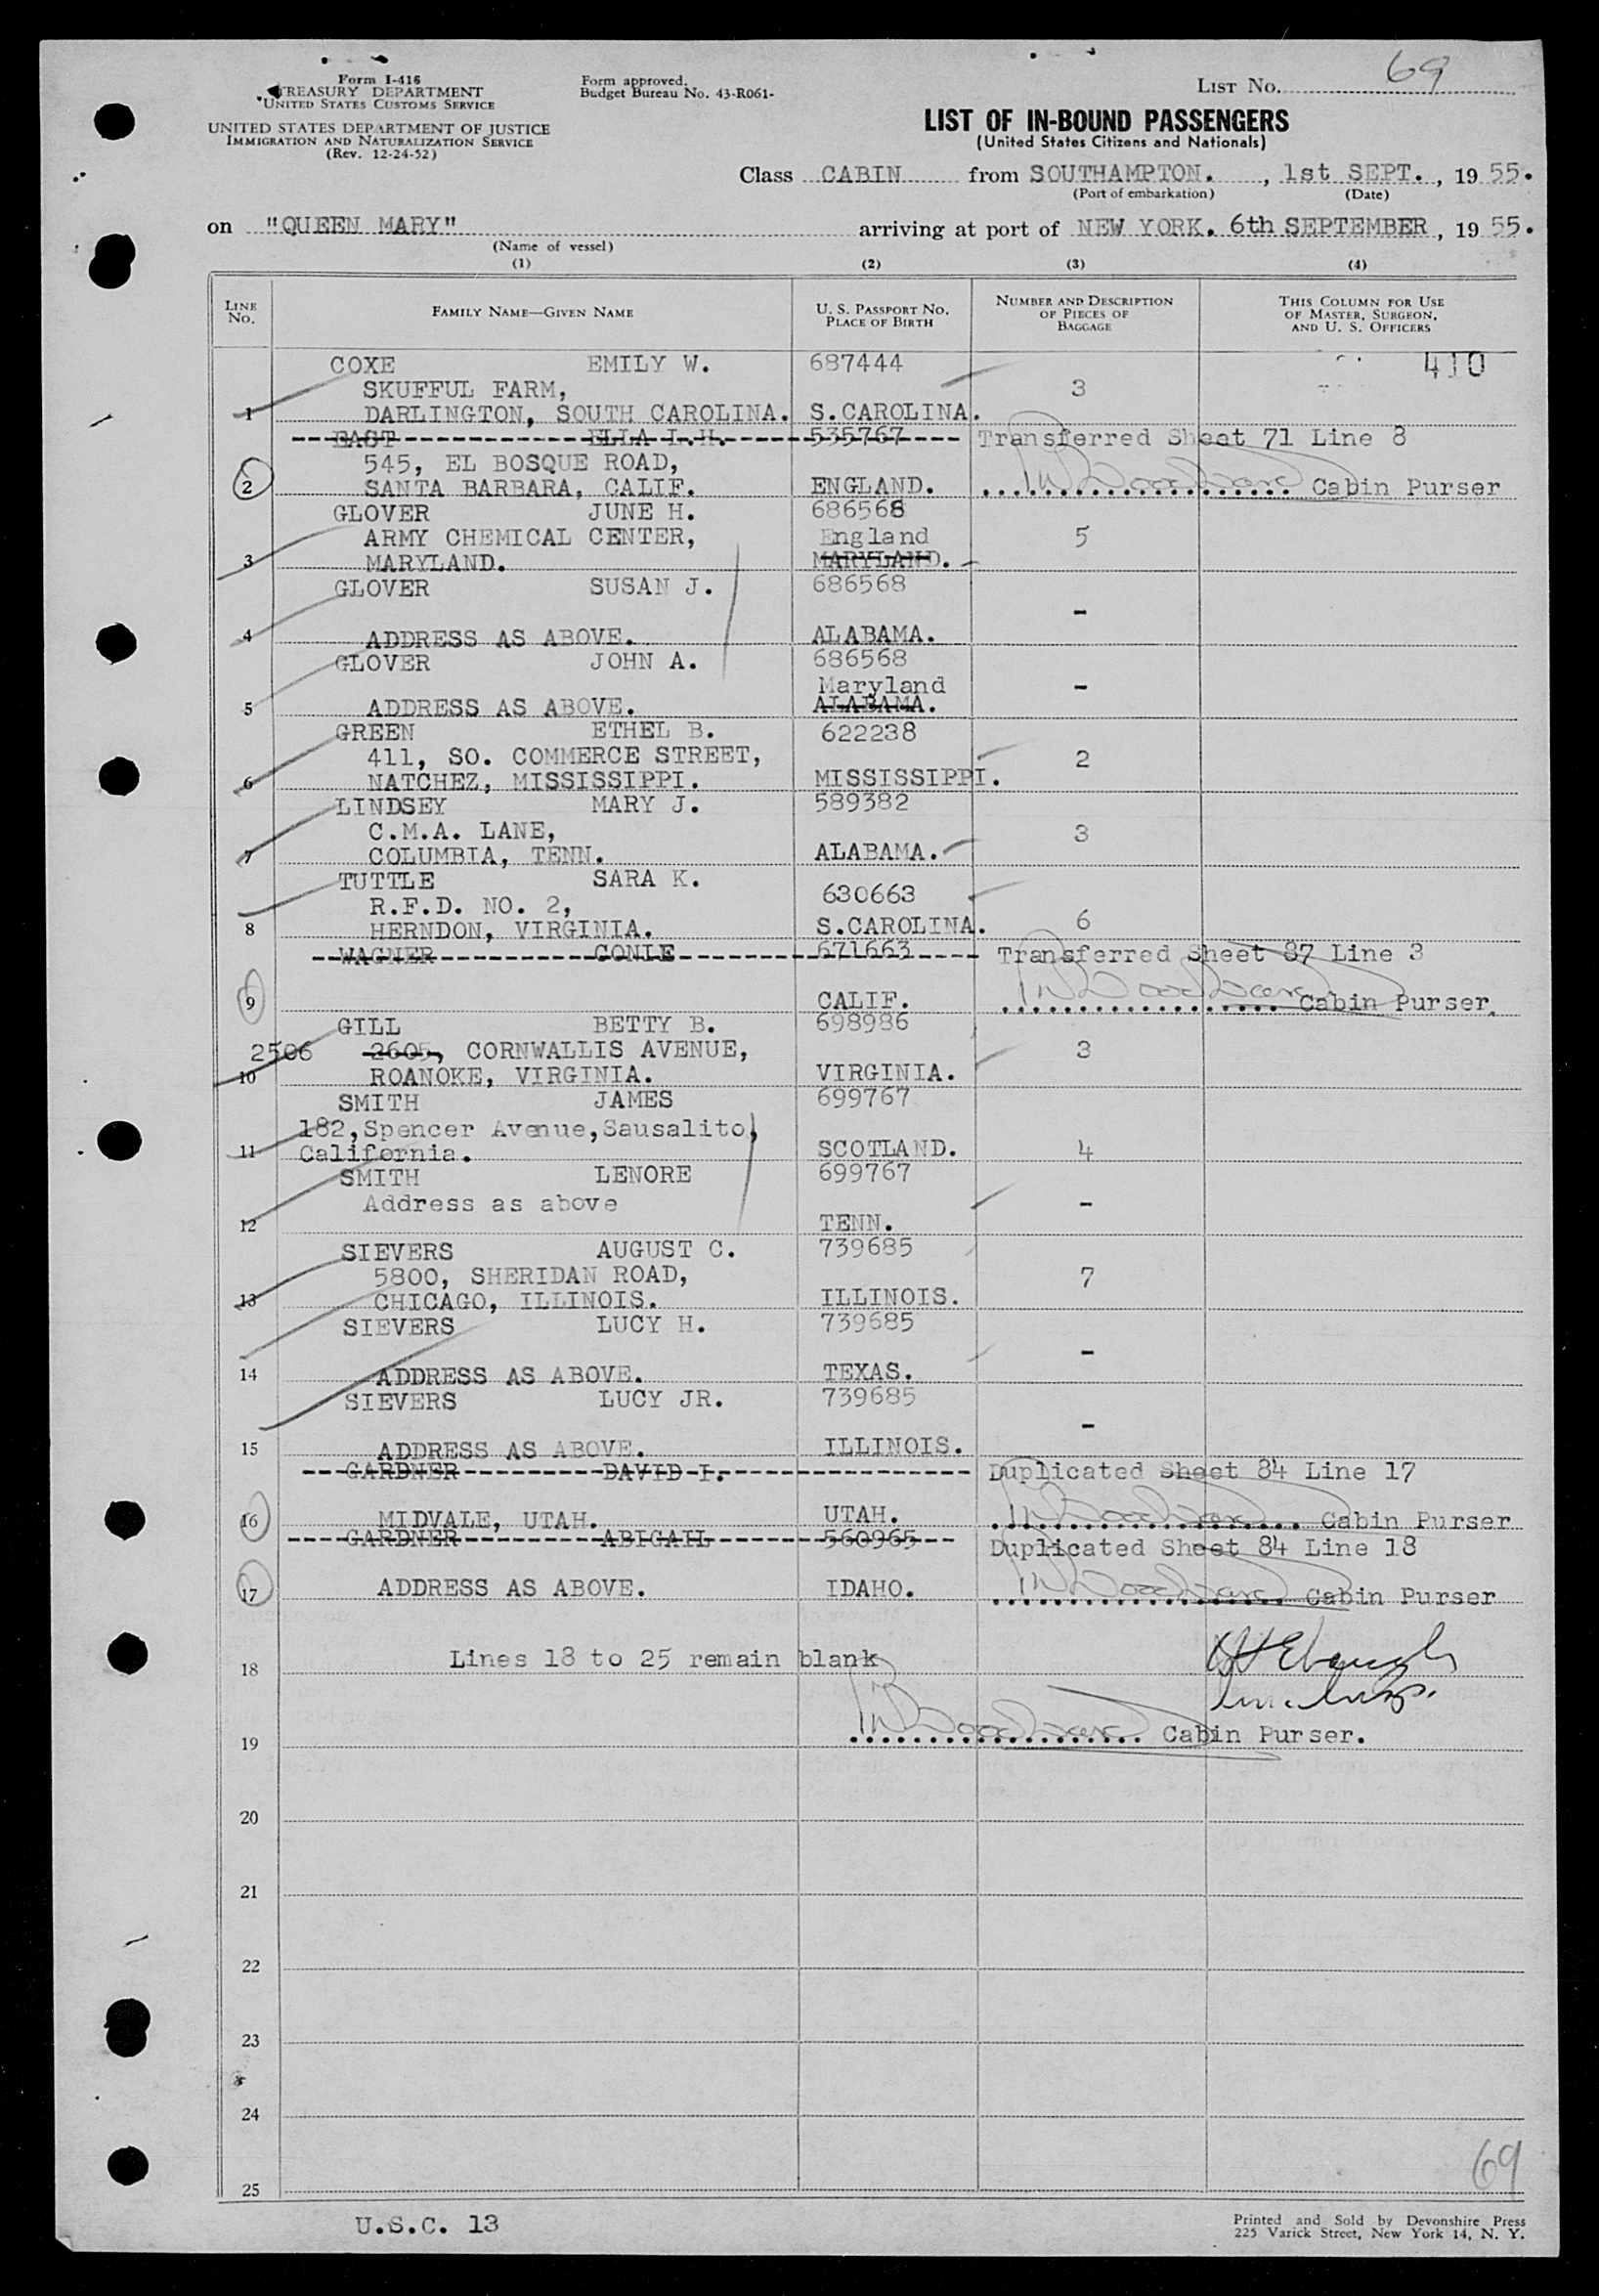 Form I-416
TREASURY DEPARTMENT
UNITED STATES CUSTOMS SERVICE
UNITED STATES DEPARTMENT OF JUSTICE
IMMIGRATION AND NATURALIZATION SERVICE
(Rev. 12-24-52)
Form approved.
Budget Bureau No. 43-R061-
LIST No. 69
LIST OF IN-BOUND PASSENGERS
(United States Citizens and Nationals)
Class CABIN from SOUTHAMPTON. , 1st SEPT. , 19 55.
(Port of embarkation) (Date)
on "QUEEN MARY" arriving at port of NEW YORK. 6th SEPTEMBER , 19 55.
(Name of vessel)
(1) (2) (3) (4)
LINE No. FAMILY NAME—GIVEN NAME U. S. PASSPORT NO. PLACE OF BIRTH NUMBER AND DESCRIPTION OF PIECES OF BAGGAGE THIS COLUMN FOR USE OF MASTER, SURGEON, AND U. S. OFFICERS
COXE EMILY W. 687444 410
SKUFFUL FARM, 3
1 DARLINGTON, SOUTH CAROLINA. S.CAROLINA.
EAST ELLA I.H. 535767 Transferred Sheet 71 Line 8
545, EL BOSQUE ROAD,
2 SANTA BARBARA, CALIF. ENGLAND. Cabin Purser
GLOVER JUNE H. 686568
ARMY CHEMICAL CENTER, England 5
3 MARYLAND. MARYLAND.
GLOVER SUSAN J. 686568
-
4 ADDRESS AS ABOVE. ALABAMA.
GLOVER JOHN A. 686568
Maryland -
5 ADDRESS AS ABOVE. ALABAMA.
GREEN ETHEL B. 622238
411, SO. COMMERCE STREET, 2
6 NATCHEZ, MISSISSIPPI. MISSISSIPPI.
LINDSEY MARY J. 589382
C.M.A. LANE, 3
7 COLUMBIA, TENN. ALABAMA.
TUTTLE SARA K. 630663
R.F.D. NO. 2, 6
8 HERNDON, VIRGINIA. S.CAROLINA.
WAGNER CONIE 671663 Transferred Sheet 87 Line 3
9 CALIF. Cabin Purser.
GILL BETTY B. 698986
2506 2605, CORNWALLIS AVENUE, 3
10 ROANOKE, VIRGINIA. VIRGINIA.
SMITH JAMES 699767
182,Spencer Avenue,Sausalito,
11 California. SCOTLAND. 4
SMITH LENORE 699767
Address as above -
12 TENN.
SIEVERS AUGUST C. 739685
5800, SHERIDAN ROAD, 7
13 CHICAGO, ILLINOIS. ILLINOIS.
SIEVERS LUCY H. 739685
-
14 ADDRESS AS ABOVE. TEXAS.
SIEVERS LUCY JR. 739685
-
15 ADDRESS AS ABOVE. ILLINOIS.
GARDNER DAVID I. Duplicated Sheet 84 Line 17
16 MIDVALE, UTAH. UTAH. Cabin Purser
GARDNER ABIGAIL 560965 Duplicated Sheet 84 Line 18
17 ADDRESS AS ABOVE. IDAHO. Cabin Purser
18 Lines 18 to 25 remain blank
19 Cabin Purser.
20
21
22
23
24
25
69
U.S.C. 13
Printed and Sold by Devonshire Press
225 Varick Street, New York 14, N. Y.